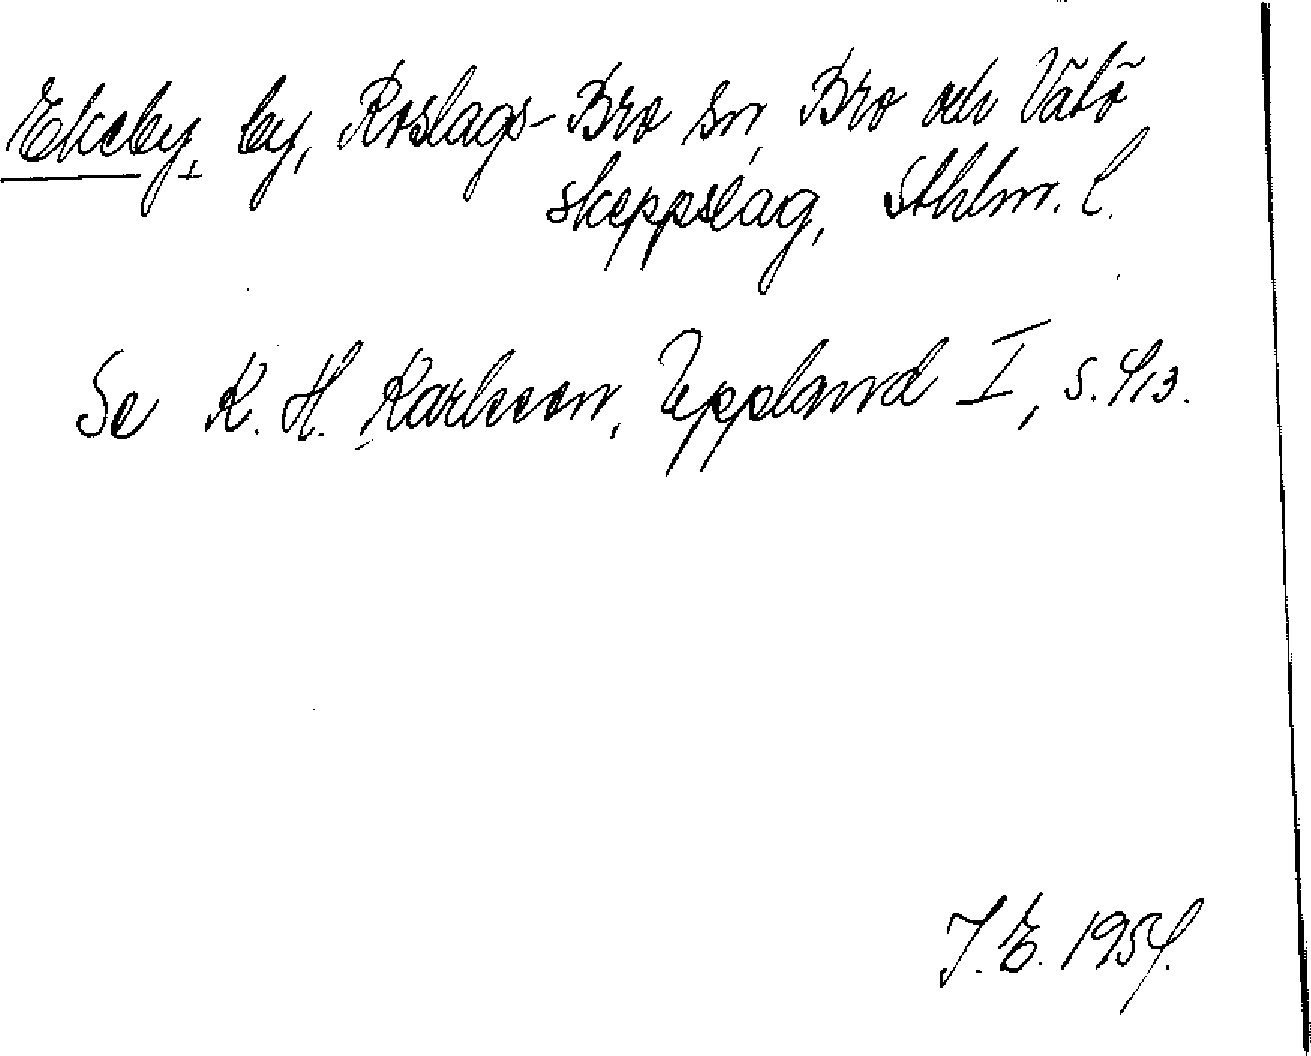 Ekeby, by, Roslags-Bro sn, Bro och Vätö
skeppslag, Sthlm. l.
Se K. H. Karlsson, Uppland I, s. 413.
J. E. 1954.